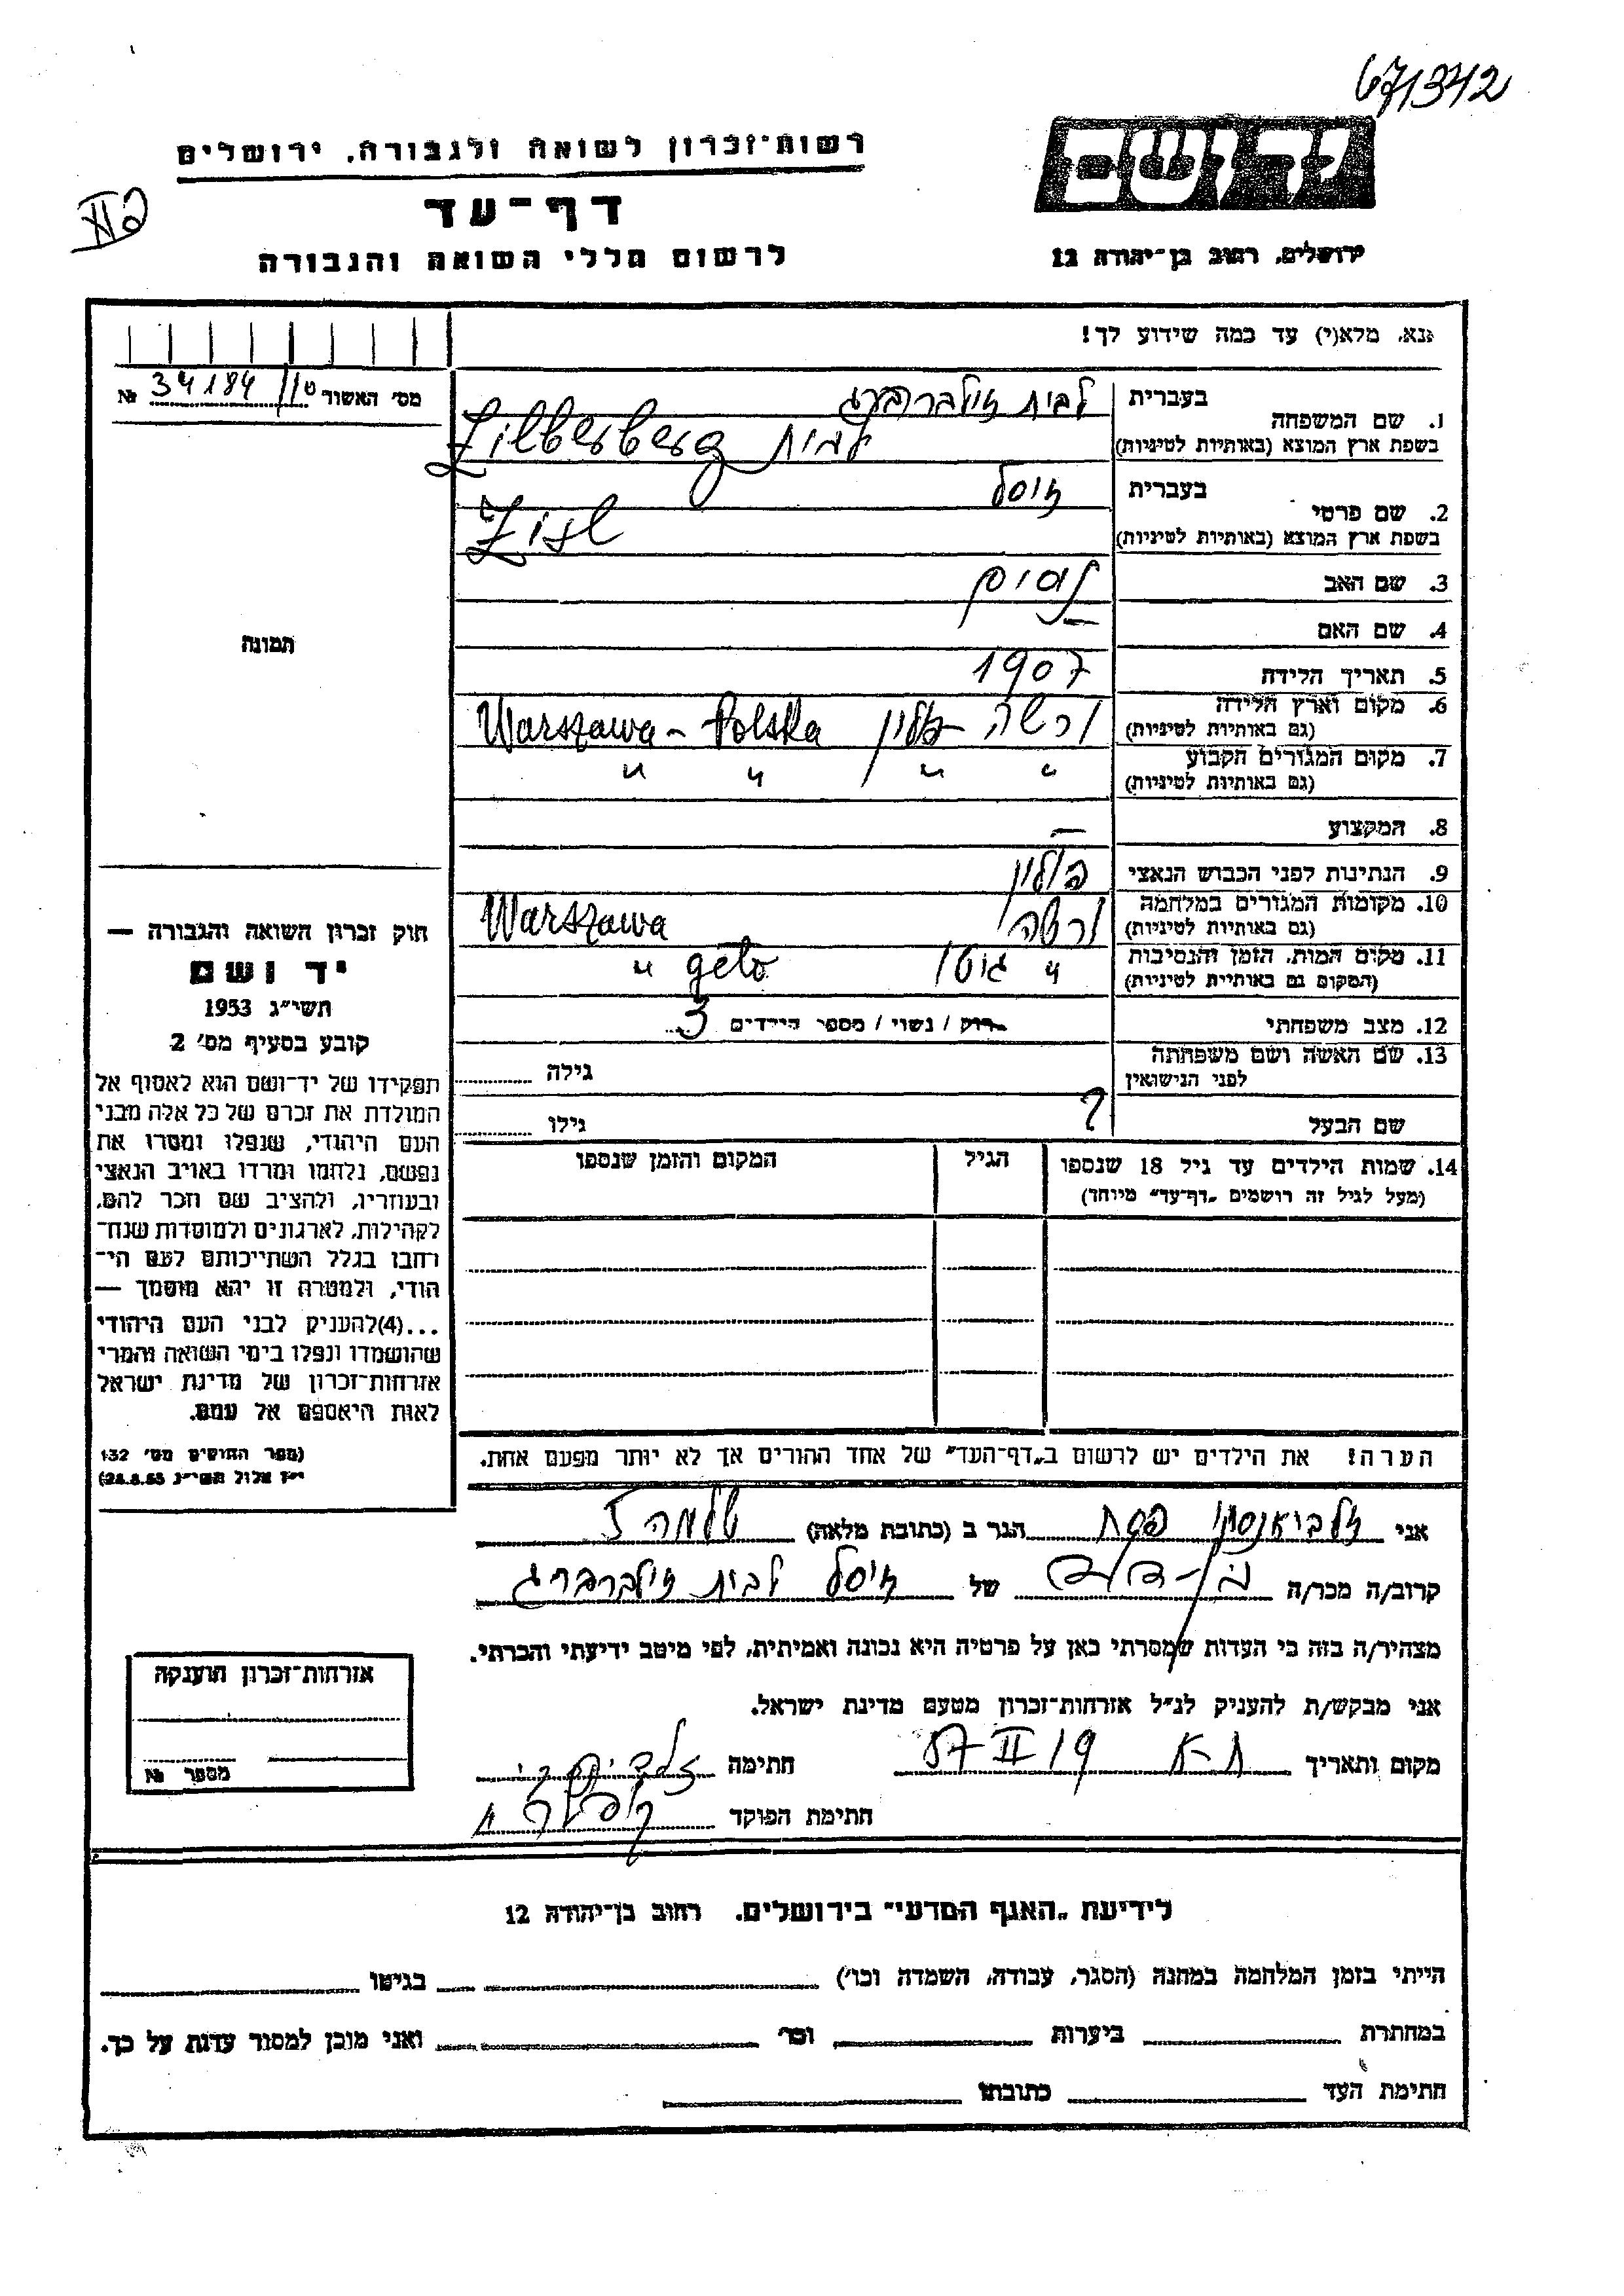 671342
רשות־זכרון לשואה ולגבורה, ירושלים
דף־עד
לרשום חללי השואה והגבורה
ידושם
ירושלים, רחוב בן־יהודה 12
אנא, מלא(י) עד כמה שידוע לך!
מס׳ האשור 34184 №
1. שם המשפחה
בעברית לבית זילברברג
בשפת ארץ המוצא (באותיות לטיניות) לבית Zilberberg
2. שם פרטי
בעברית זיסל
בשפת ארץ המוצא (באותיות לטיניות) Zisl
3. שם האב נסים
4. שם האם —
5. תאריך הלידה 1907
6. מקום וארץ הלידה ורשה פולין Warszawa - Polska
(גם באותיות לטיניות)
7. מקום המגורים הקבוע " " " "
(גם באותיות לטיניות)
8. המקצוע —
9. הנתינות לפני הכבוש הנאצי פולין
10. מקומות המגורים במלחמה ורשה Warszawa
(גם באותיות לטיניות)
11. מקום המות, הזמן והנסיבות " גיטו " geto
(המקום גם באותיות לטיניות)
12. מצב משפחתי רווק / נשוי / מספר הילדים 3
13. שם האשה ושם משפחתה
לפני הנישואין גילה
שם הבעל ? גילו
14. שמות הילדים עד גיל 18 שנספו הגיל המקום והזמן שנספו
(מעל לגיל זה רושמים „דף־עד״ מיוחד)
הערה! את הילדים יש לרשום ב„דף־העד״ של אחד ההורים אך לא יותר מפעם אחת.
תמונה
חוק זכרון השואה והגבורה —
יד ושם
תשי״ג 1953
קובע בסעיף מס׳ 2
תפקידו של יד־ושם הוא לאסוף אל
המולדת את זכרם של כל אלה מבני
העם היהודי, שנפלו ומסרו את
נפשם, נלחמו ומרדו באויב הנאצי
ובעוזריו, ולהציב שם וזכר להם,
לקהילות, לארגונים ולמוסדות שנח־
רבו בגלל השתייכותם לעם הי־
הודי, ולמטרה זו יהא מוסמך —
...(4)להעניק לבני העם היהודי
שהושמדו ונפלו בימי השואה והמרי
אזרחות־זכרון של מדינת ישראל
לאות היאספם אל עמם.
(ספר החוקים מס׳ 132
י״ז אלול תשי״ג 28.8.53)
אני פסח הגר ב (כתובת מלאה) שלמה
קרוב/ה מכר/ה בן-דוד של זיסל לבית זילברברג
מצהיר/ה בזה כי העדות שמסרתי כאן על פרטיה היא נכונה ואמיתית, לפי מיטב ידיעתי והכרתי.
אני מבקש/ת להעניק לנ״ל אזרחות־זכרון מטעם מדינת ישראל.
מקום ותאריך ת-א 19 II 57 חתימה
חתימת הפוקד
אזרחות־זכרון הוענקה
מספר №
לידיעת „האגף המדעי״ בירושלים. רחוב בן־יהודה 12
הייתי בזמן המלחמה במחנה (הסגר, עבודה, השמדה וכו׳) בגיטו
במחתרת ביערות וכו׳ ואני מוכן למסור עדות על כך.
חתימת העד כתובתו